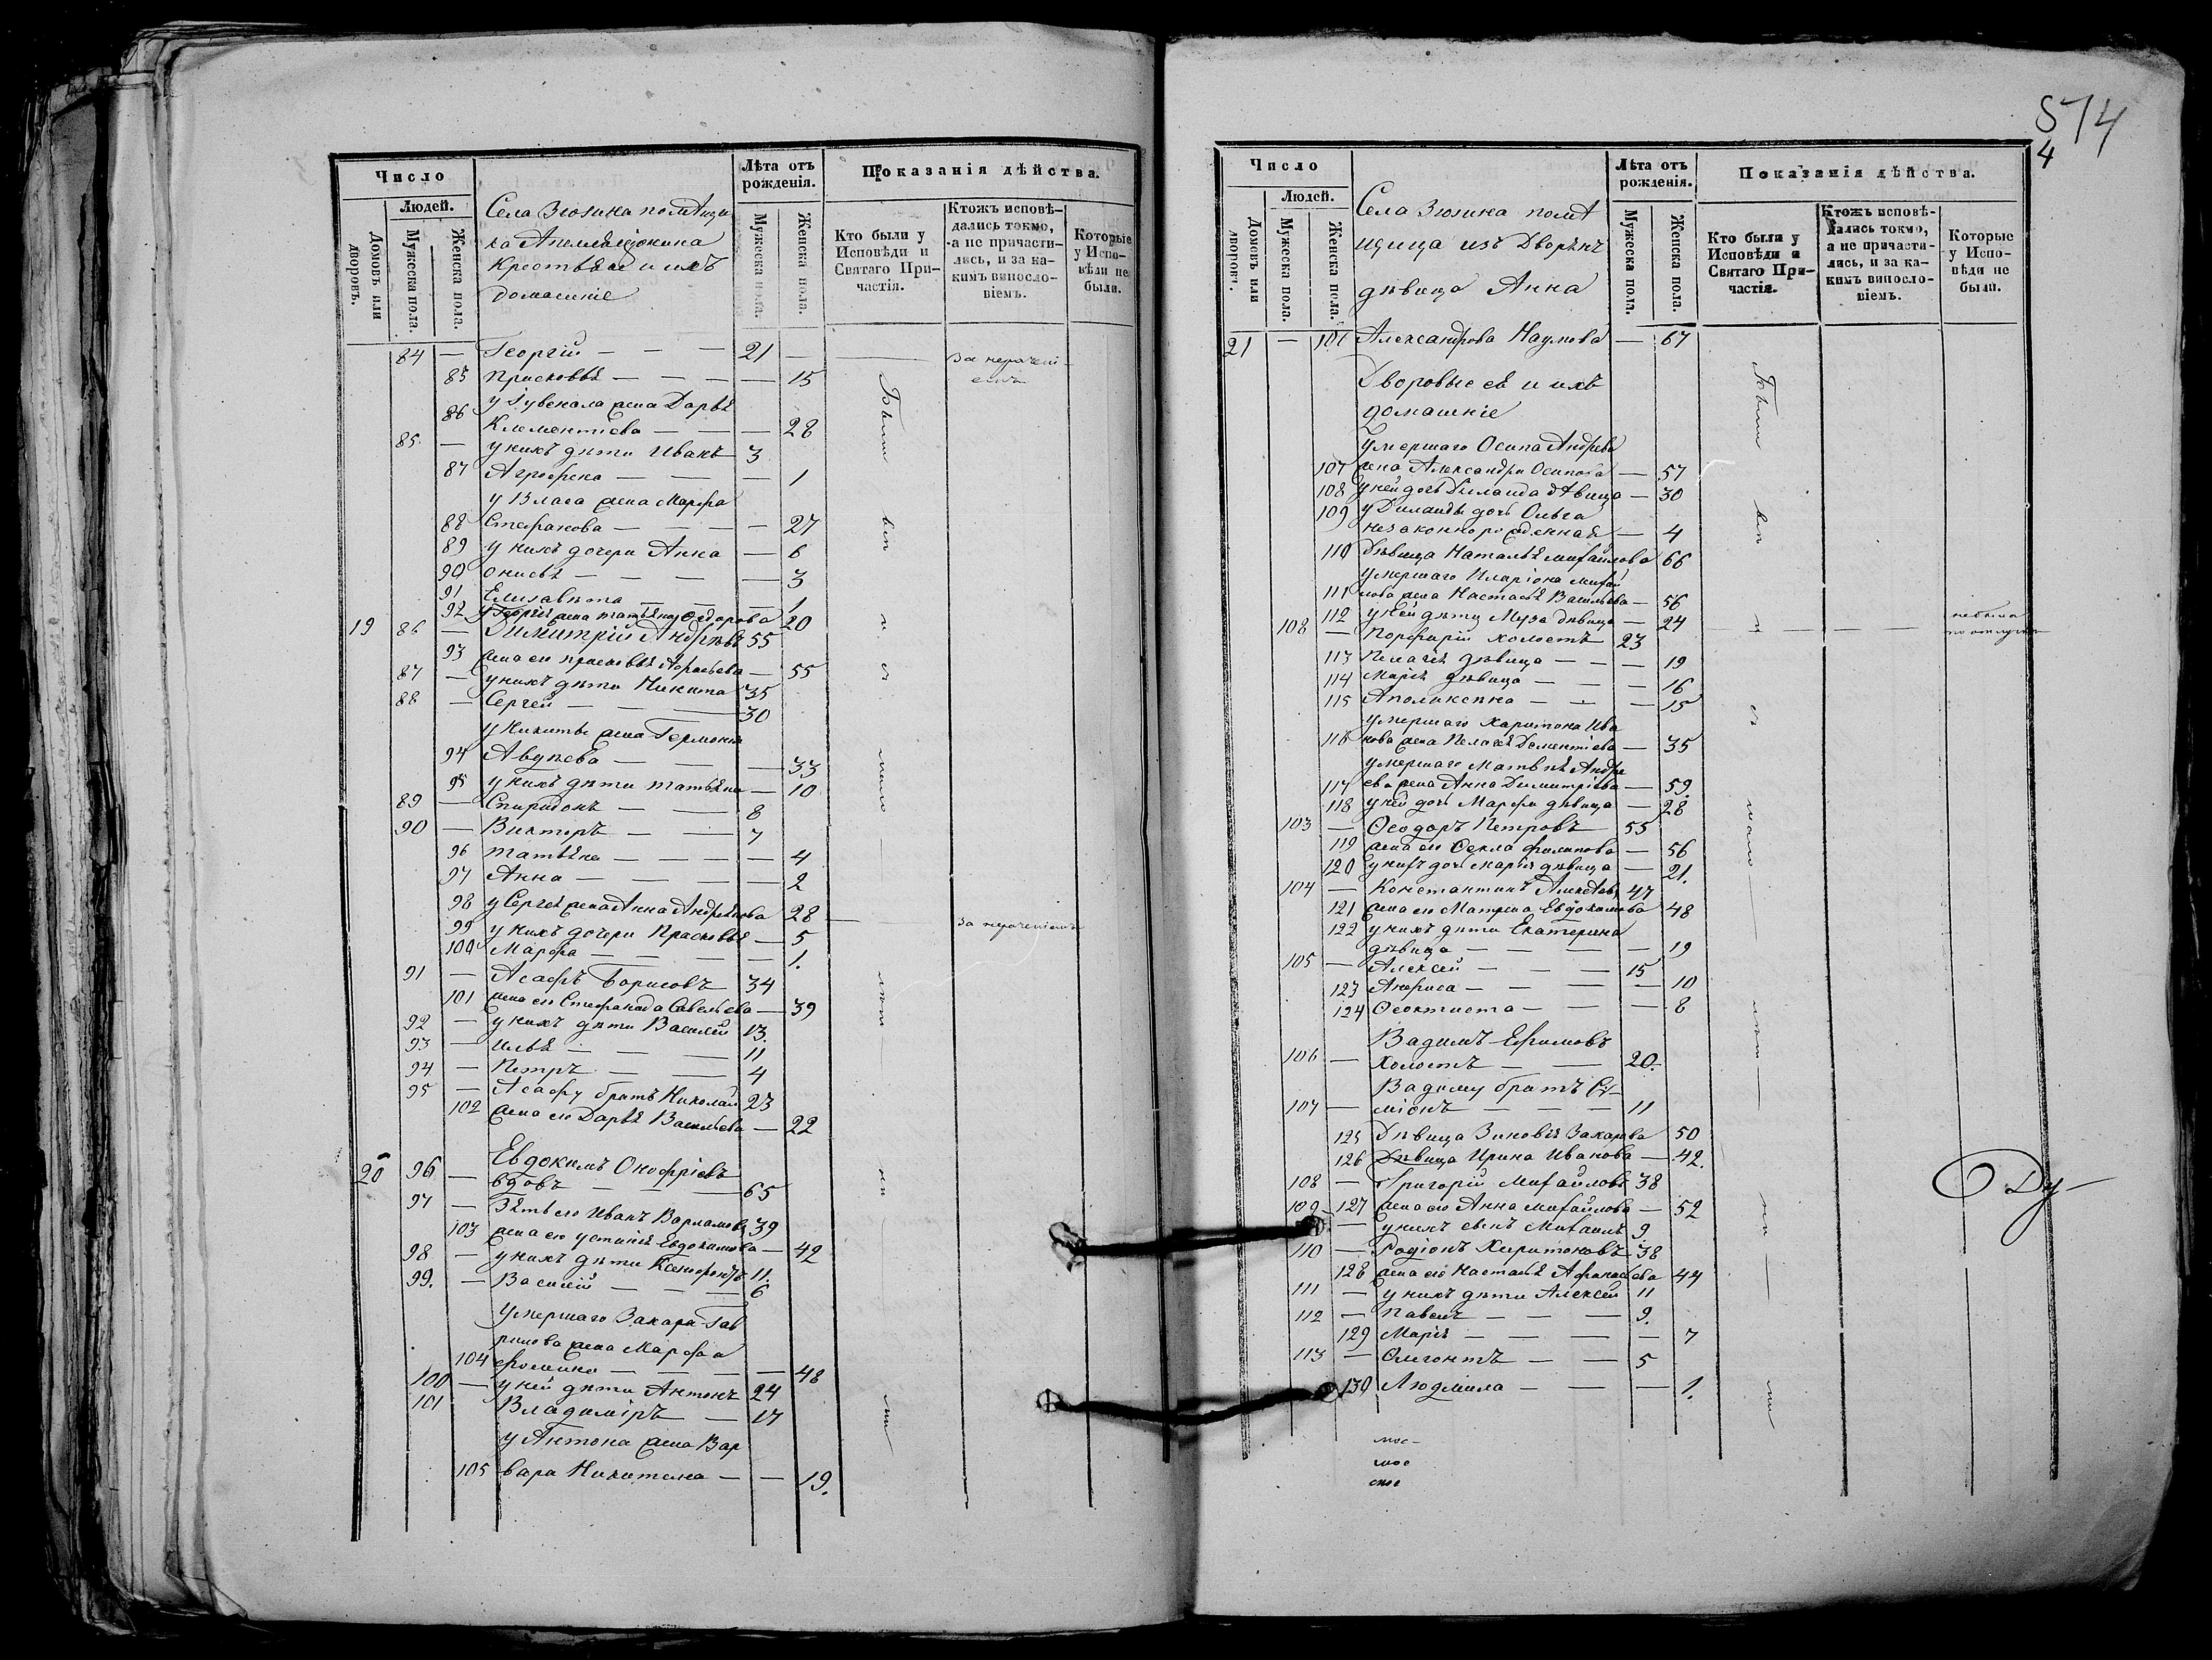 574
4
Число
Людей.
Домовъ или дворовъ.
Мужеска пола.
Женска пола.
Села Зюзина помѣщи
ка
Крестьяне и ихъ
домашніе
Лѣта отъ рожденія.
Мужеска пола.
Женска пола.
Показанія дѣйства.
Кто были у Исповѣди и Святаго Причастія.
Ктожъ исповѣдались токмо, а не причастились, и за какимъ винословіемъ.
Которые у Исповѣди не были.
84 — Георгій — — — 21 — за нерачені
85 Прасковья — — — — 15 емъ
у Іувенала жена Дарья
86 Климентіева — — — 28
85 — у нихъ дѣти Иванъ 3
87 Аграфена — — — — 1
у Власа жена Марфа
88 Стефанова — — — — 27
89 у нихъ дочери Анна — 6
90 Онисья — — — — 3
91 Елисавета — — — — 1
92 у Георгія жена Татьяна Ѳедорова 20
19 86 — Димитрій Андреевъ 55
93 жена его Прасковья — 55
87 — у нихъ дѣти Никита 35
88 — Сергей — — — 30
у Никиты жена
94 Авдѣева — — — 33
95 у нихъ дѣти Татьяна — 10
89 — Спиридонъ — — 8
90 — Викторъ — — 7
96 Татьяна — — — — 4
97 Анна — — — — 2
98 у Сергея жена Анна 28
99 у нихъ дочери Прасковья — 5 за нераченіемъ
100 Марфа — — — — 1.
91 — Асафъ Борисовъ 34
101 жена его Стефанида Савельева — 39
92 — у нихъ дѣти Василій 13.
93 — Илья — — — 11
94 — Петръ — — 4
95 — Асафу братъ Николай 23
102 жена его Дарья Васильева — 22
Евдокимъ Онофріевъ
20 96 — вдовъ — — — 65
97 — Зять его Иванъ Варламовъ 39
103 жена его Устинья Евдокимова — 42
98 — у нихъ дѣти Ксенофонтъ 11.
99. — Василій — — — 6
Умершаго Захара Гав
рилова жена Марфа
104 Фомина — — — — 48
100 — у ней дѣти Антонъ 24
101 Владиміръ — 17
у Антона жена Вар
105 вара Никитина — — 19.
Были
у
и
с
мало
лѣт
Число
Людей.
Домовъ или дворовъ.
Мужеска пола.
Женска пола.
Села Зюзина помѣ
щица изъ Дворянъ
дѣвица Анна
Лѣта отъ рожденія.
Мужеска пола.
Женска пола.
Показанія дѣйства.
Кто были у Исповѣди и Святаго Причастія.
Ктожъ исповѣдались токмо, а не причастились, и за какимъ винословіемъ.
Которые у Исповѣди не были.
21 — 106 Александрова Наумова — 67
Дворовые ея и ихъ
домашніе
Умершаго Осипа Андреева
107 жена Александра Осипова — 57
108 у ней дочь дѣвица — 30
109 дочь Ольга
незаконнорожденная — 4
110 Дѣвица Наталья Михайлова 66
Умершаго Иларіона Михай
111 лова жена Настасья Васильева — 56
112 у ней дѣти Муза дѣвица — 24
108 — Порфирій холостъ 23 — — — не былъ по отлучкѣ
113 Пелагея дѣвица — — — 19
114 Марія дѣвица — — — 16
115 — — — 15
Умершаго Харитона Ива
116 нова жена Пелагея Дементіева — 35
Умершаго Матвѣя Андре
117 ева жена Анна Димитріева — 59.
118 у ней дочь Марфа дѣвица — 28
103 — Ѳеодоръ Петровъ 55
119 жена его Ѳекла Филипова — 56
120 у нихъ дочь Марія дѣвица — 21.
104 — Константинъ 47
121 жена его Матрена Евдокимова 48
122 у нихъ дѣти Екатерина
дѣвица — — — — 19
105 — Алексей — — — 15
123 — — — — 10
124 Ѳеоктиста — — — 8
Вадимъ Ефимовъ
106 — Холостъ — — 20.
Вадиму братъ Си
107 — міонъ — — — 11
125 Дѣвица Зиновья Захарова 50
126 Дѣвица Ирина Иванова — 42.
108 — Григорій Михайловъ 38
127 жена его Анна Михайлова — 52
109 — у нихъ сынъ Михаилъ 9.
110 — Родіонъ Харитоновъ 38
128 жена его Настасья Афанасьева 44
111 — у нихъ дѣти Алексей 11
112 — Павелъ — — — 9.
129 Марія — — — — 7
113 — — — 5
130 Людмила — — — 1.
Были
у
и
с
мало
лѣт
мос-
мос
ское
Ду-